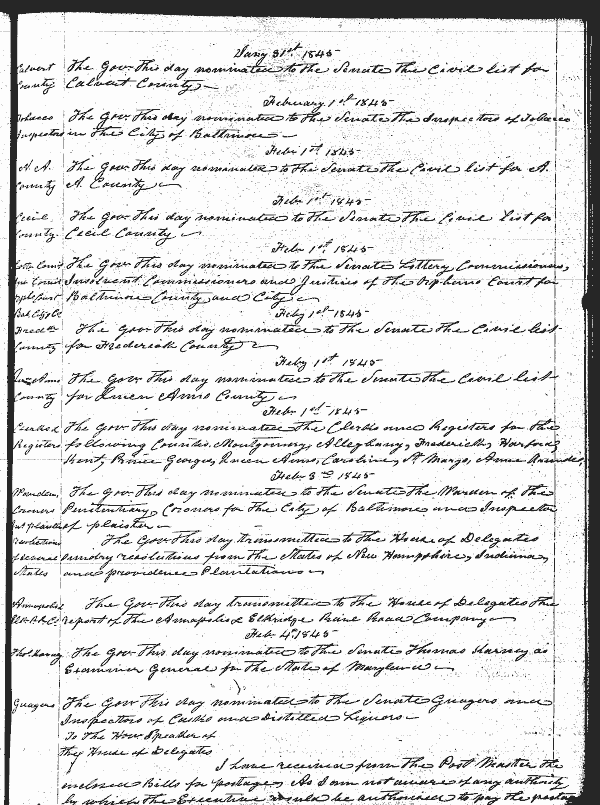 Jany 31st 1845
Calvert The Gov. This day nominated to the Senate The Civil list for
County Calvert County
February 1st 1845
Tobacco The Gov. This day nominated to the Senate The Inspectors of Tobacco
Inspectors in The City of Baltimore
Feby 1st 1845
A. A. The Gov. This day nominated to the Senate The Civil list for A.
County A. County
Feby 1st 1845
Cecil The Gov. This day nominated to the Senate The Civil list for
County. Cecil County
Feby 1st 1845
The Gov. This day nominated to the Senate Lottery Commissioners,
Insolvent Commissioners and Justices of the Orphans Court for
Baltimore County and City
Feby 1st 1845
Fredk The Gov. This day nominated to the Senate The Civil list
County for Frederick County
Feby 1st 1845
Queen Anns The Gov. This day nominated to the Senate The Civil list
County for Queen Anns County
Feby 1st 1845
The Gov. This day nominated The Clerks and Registers for the
Registers following Counties. Montgomery, Alleghany, Frederick, Harford,
Kent, Prince Georges, Queen Anns, Caroline, St Marys, Anne Arundel,
Feby 3rd 1845
Warden, The Gov. This day nominated to the Senate The Warden of The
Coroners Penitentiary, Coroners for The City of Baltimore and Inspector
of plaister
Resolutions The Gov. This day transmitted to The House of Delegates
of several sundry resolutions from The States of New Hampshire, Indiana,
States and providence Plantations
Annapolis The Gov. This day transmitted to The House of Delegates The
report of The Annapolis & Elkridge Rail Road Company
Feby 4th 1845
Thos. Karney The Gov. This day nominated to the Senate Thomas Karney as
Examiner General for The State of Maryland
Guagers The Gov. This day nominated to the Senate Guagers and
Inspectors of Casks and Distilled Liquors
To The Hon. Speaker of
The House of Delegates
I have received from The Post Master the
enclosed Bills for postage, As I am not aware of any authority
by which the Executive would be authorised to pay the postage